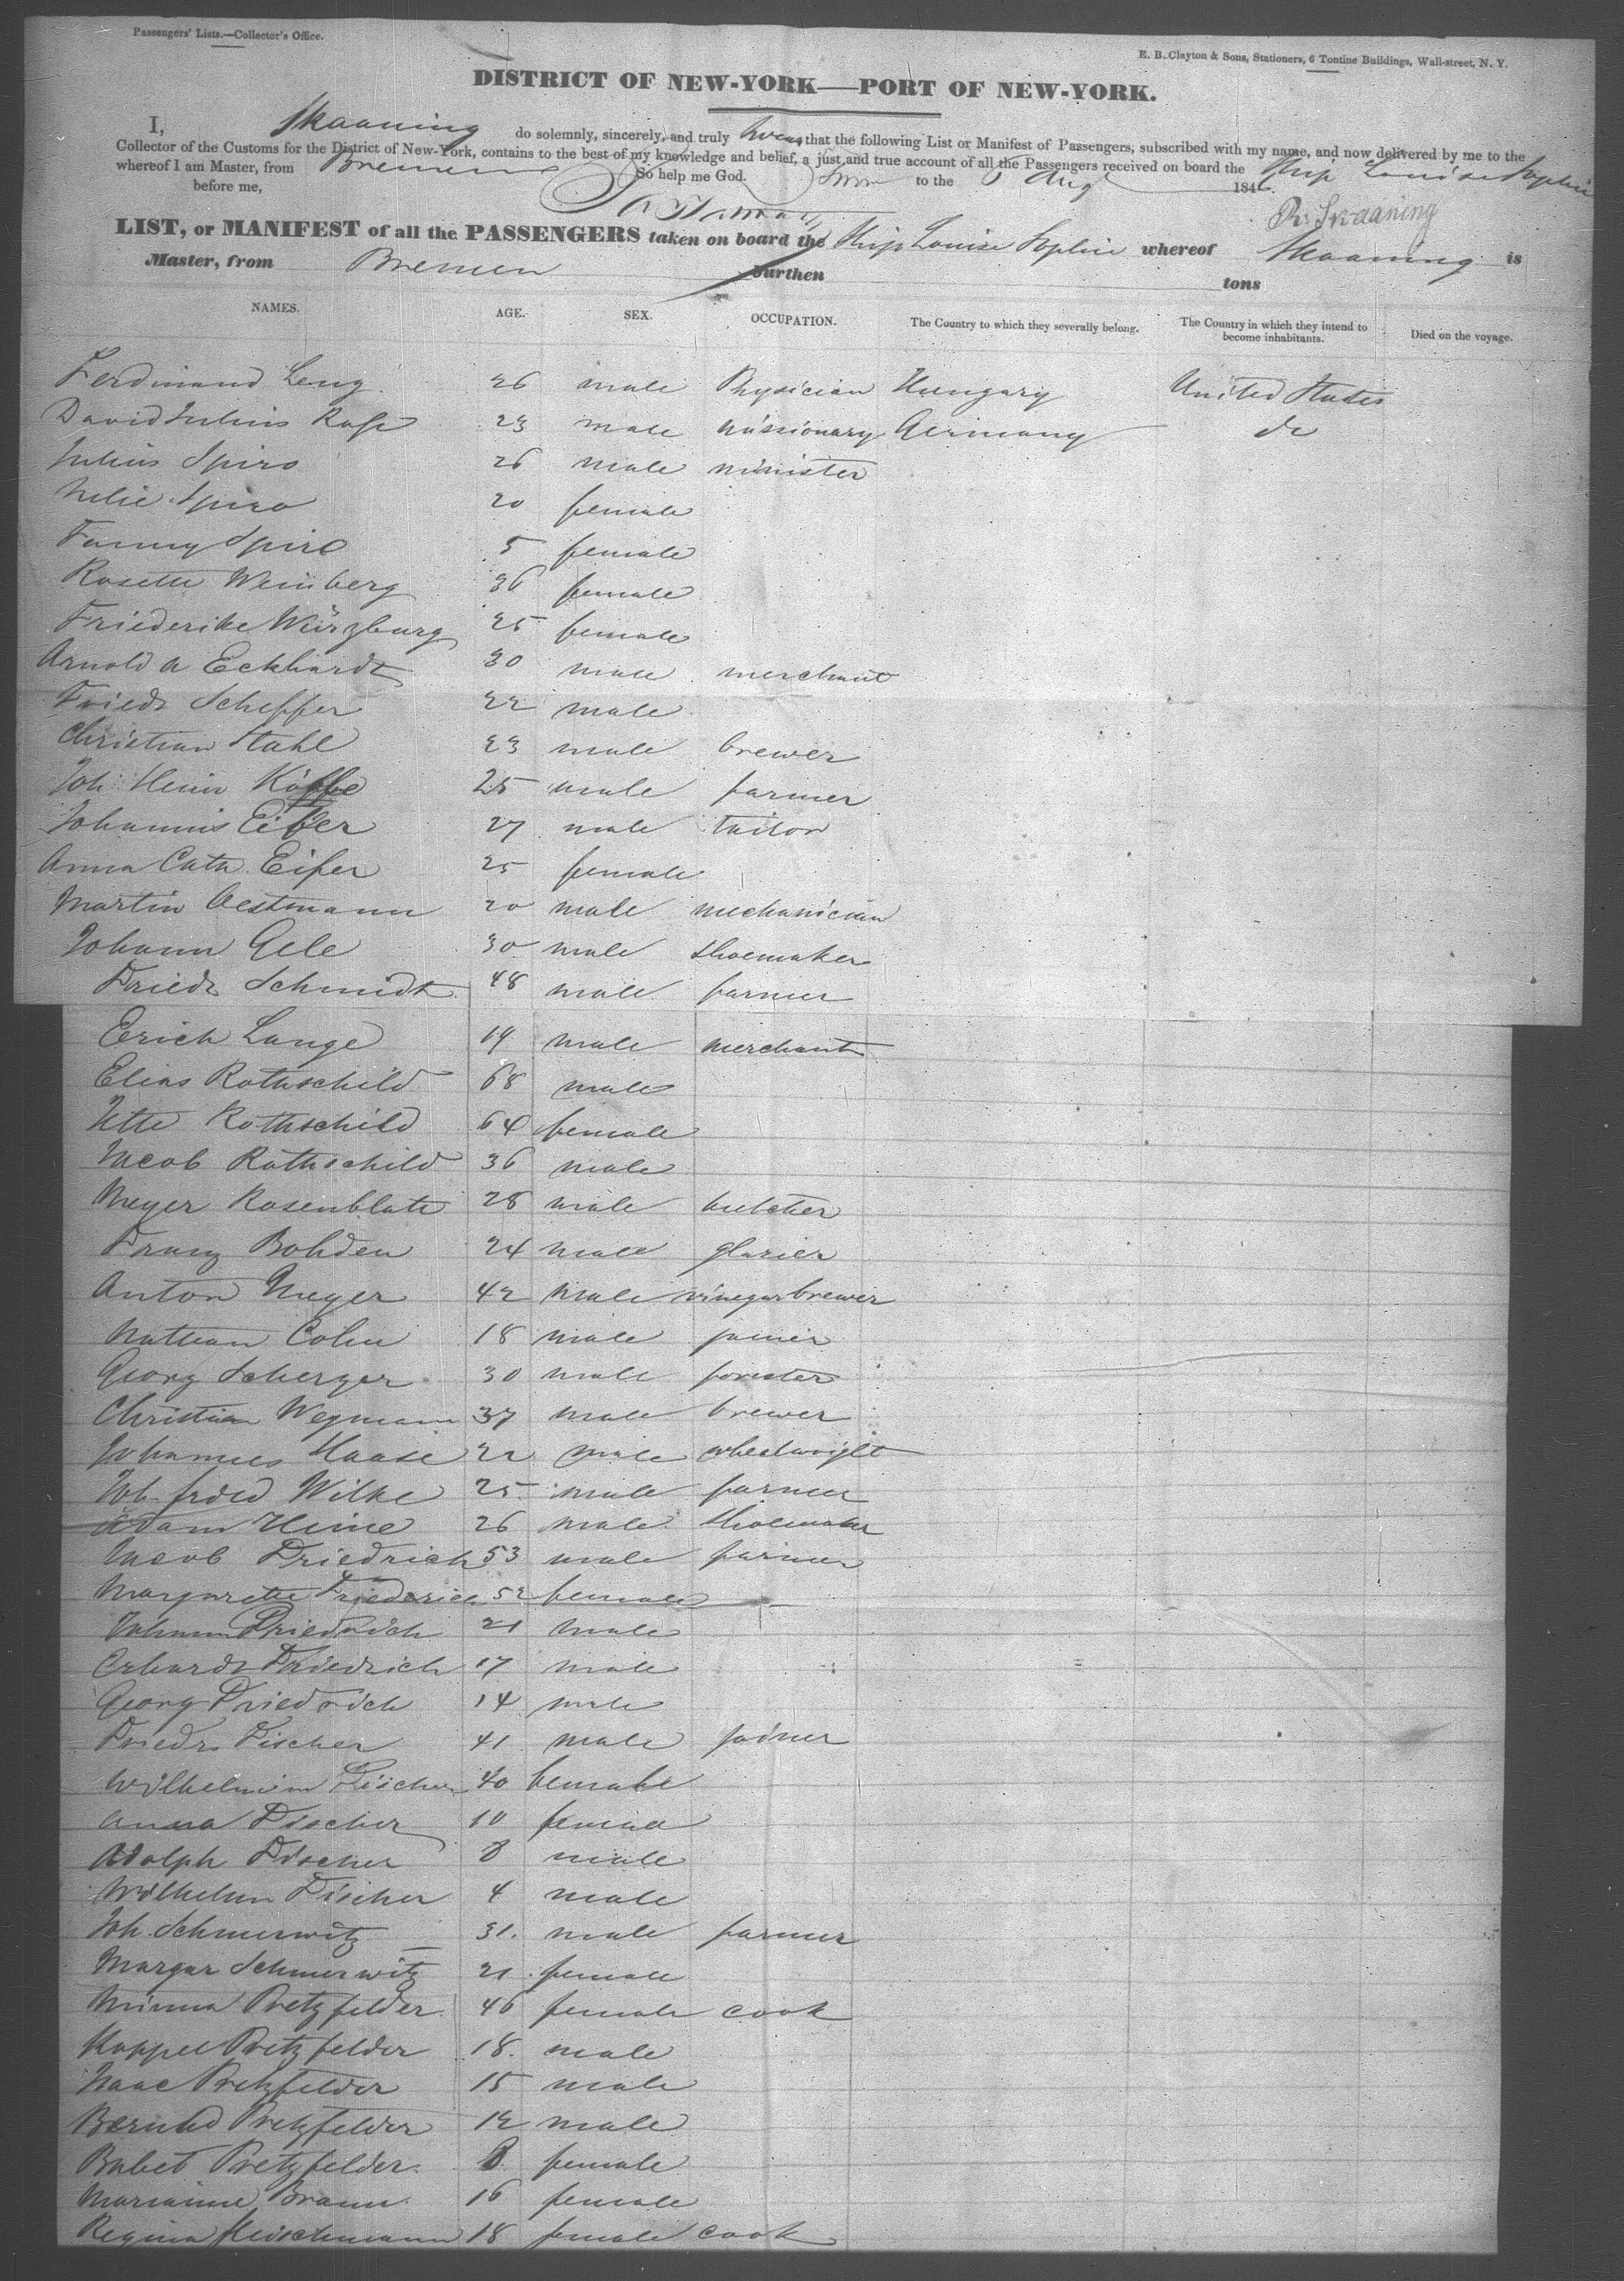 Passengers' Lists.—Collector's Office.
E. B. Clayton & Sons, Stationers, 6 Tontine Buildings, Wall-street, N. Y.
DISTRICT OF NEW-YORK—PORT OF NEW-YORK.
I, Skaaning do solemnly, sincerely, and truly swear that the following List or Manifest of Passengers, subscribed with my name, and now delivered by me to the
Collector of the Customs for the District of New-York, contains to the best of my knowledge and belief, a just and true account of all the Passengers received on board the Ship Louise Sophie
whereof I am Master, from Bremen So help me God.
Sworn to the 6 Aug 1846.
before me,
R. Skaaning
LIST, or MANIFEST of all the PASSENGERS taken on board the Ship Louise Sophie whereof Skaaning is
Master, from Bremen burthen tons
NAMES. AGE. SEX. OCCUPATION. The Country to which they severally belong. The Country in which they intend to become inhabitants. Died on the voyage.
Ferdinand Leng 26 male Physician Hungary United States
David Julius Rose 23 male missionary Germany do
Julius Spiro 26 male minister
Julie Spiro 20 female
Fanny Spiro 5 female
Rosette Weinberg 36 female
Friederike Würzburg 25 female
Arnold A Eckhardt 30 male merchant
Friedr Scheffer 22 male
Christian Stahl 23 male brewer
Joh Heinr 25 male farmer
Johannis Eifer 27 male tailor
Anna Cath. Eifer 25 female
Martin Oestmann 20 male mechanician
Johann Gele 30 male shoemaker
Friedr Schmidt 48 male farmer
Erich Lange 19 male merchant
Elias Rothschild 68 male
Jette Rothschild 64 female
Jacob Rothschild 36 male
Meyer Rosenblatt 28 male butcher
Franz Bohden 24 male glazier
Anton Meyer 42 male vinegarbrewer
Nathan Cohn 18 male joiner
Georg Scherger 30 male forester
Christian Wegmann 37 male brewer
Johannes Haase 22 male wheelwright
Joh. fried Wilke 25 male farmer
Adam Heine 26 male shoemaker
Jacob Friedrich 53 male farmer
Margarette Friederich 52 female
Johann Friedrich 21 male
Erhardt Friedrich 17 male
Georg Friedrich 14 male
Friedr. Fischer 41 male joiner
Wilhelmin Fischer 40 female
Anna Fischer 10 female
Adolph Fischer 8 male
Wilhelm Fischer 4 male
Joh. Schmerwitz 31. male farmer
Margar Schmerwitz 21. female
Minna Pretzfelder 46 female cook
Koppel Pretzfelder 18. male
Isaac Pretzfelder 15 male
Bernhd Pretzfelder 12 male
Babet Pretzfelder. 8 female
Marianne Braun. 16 female
Regina Fleischmann 18 female cook